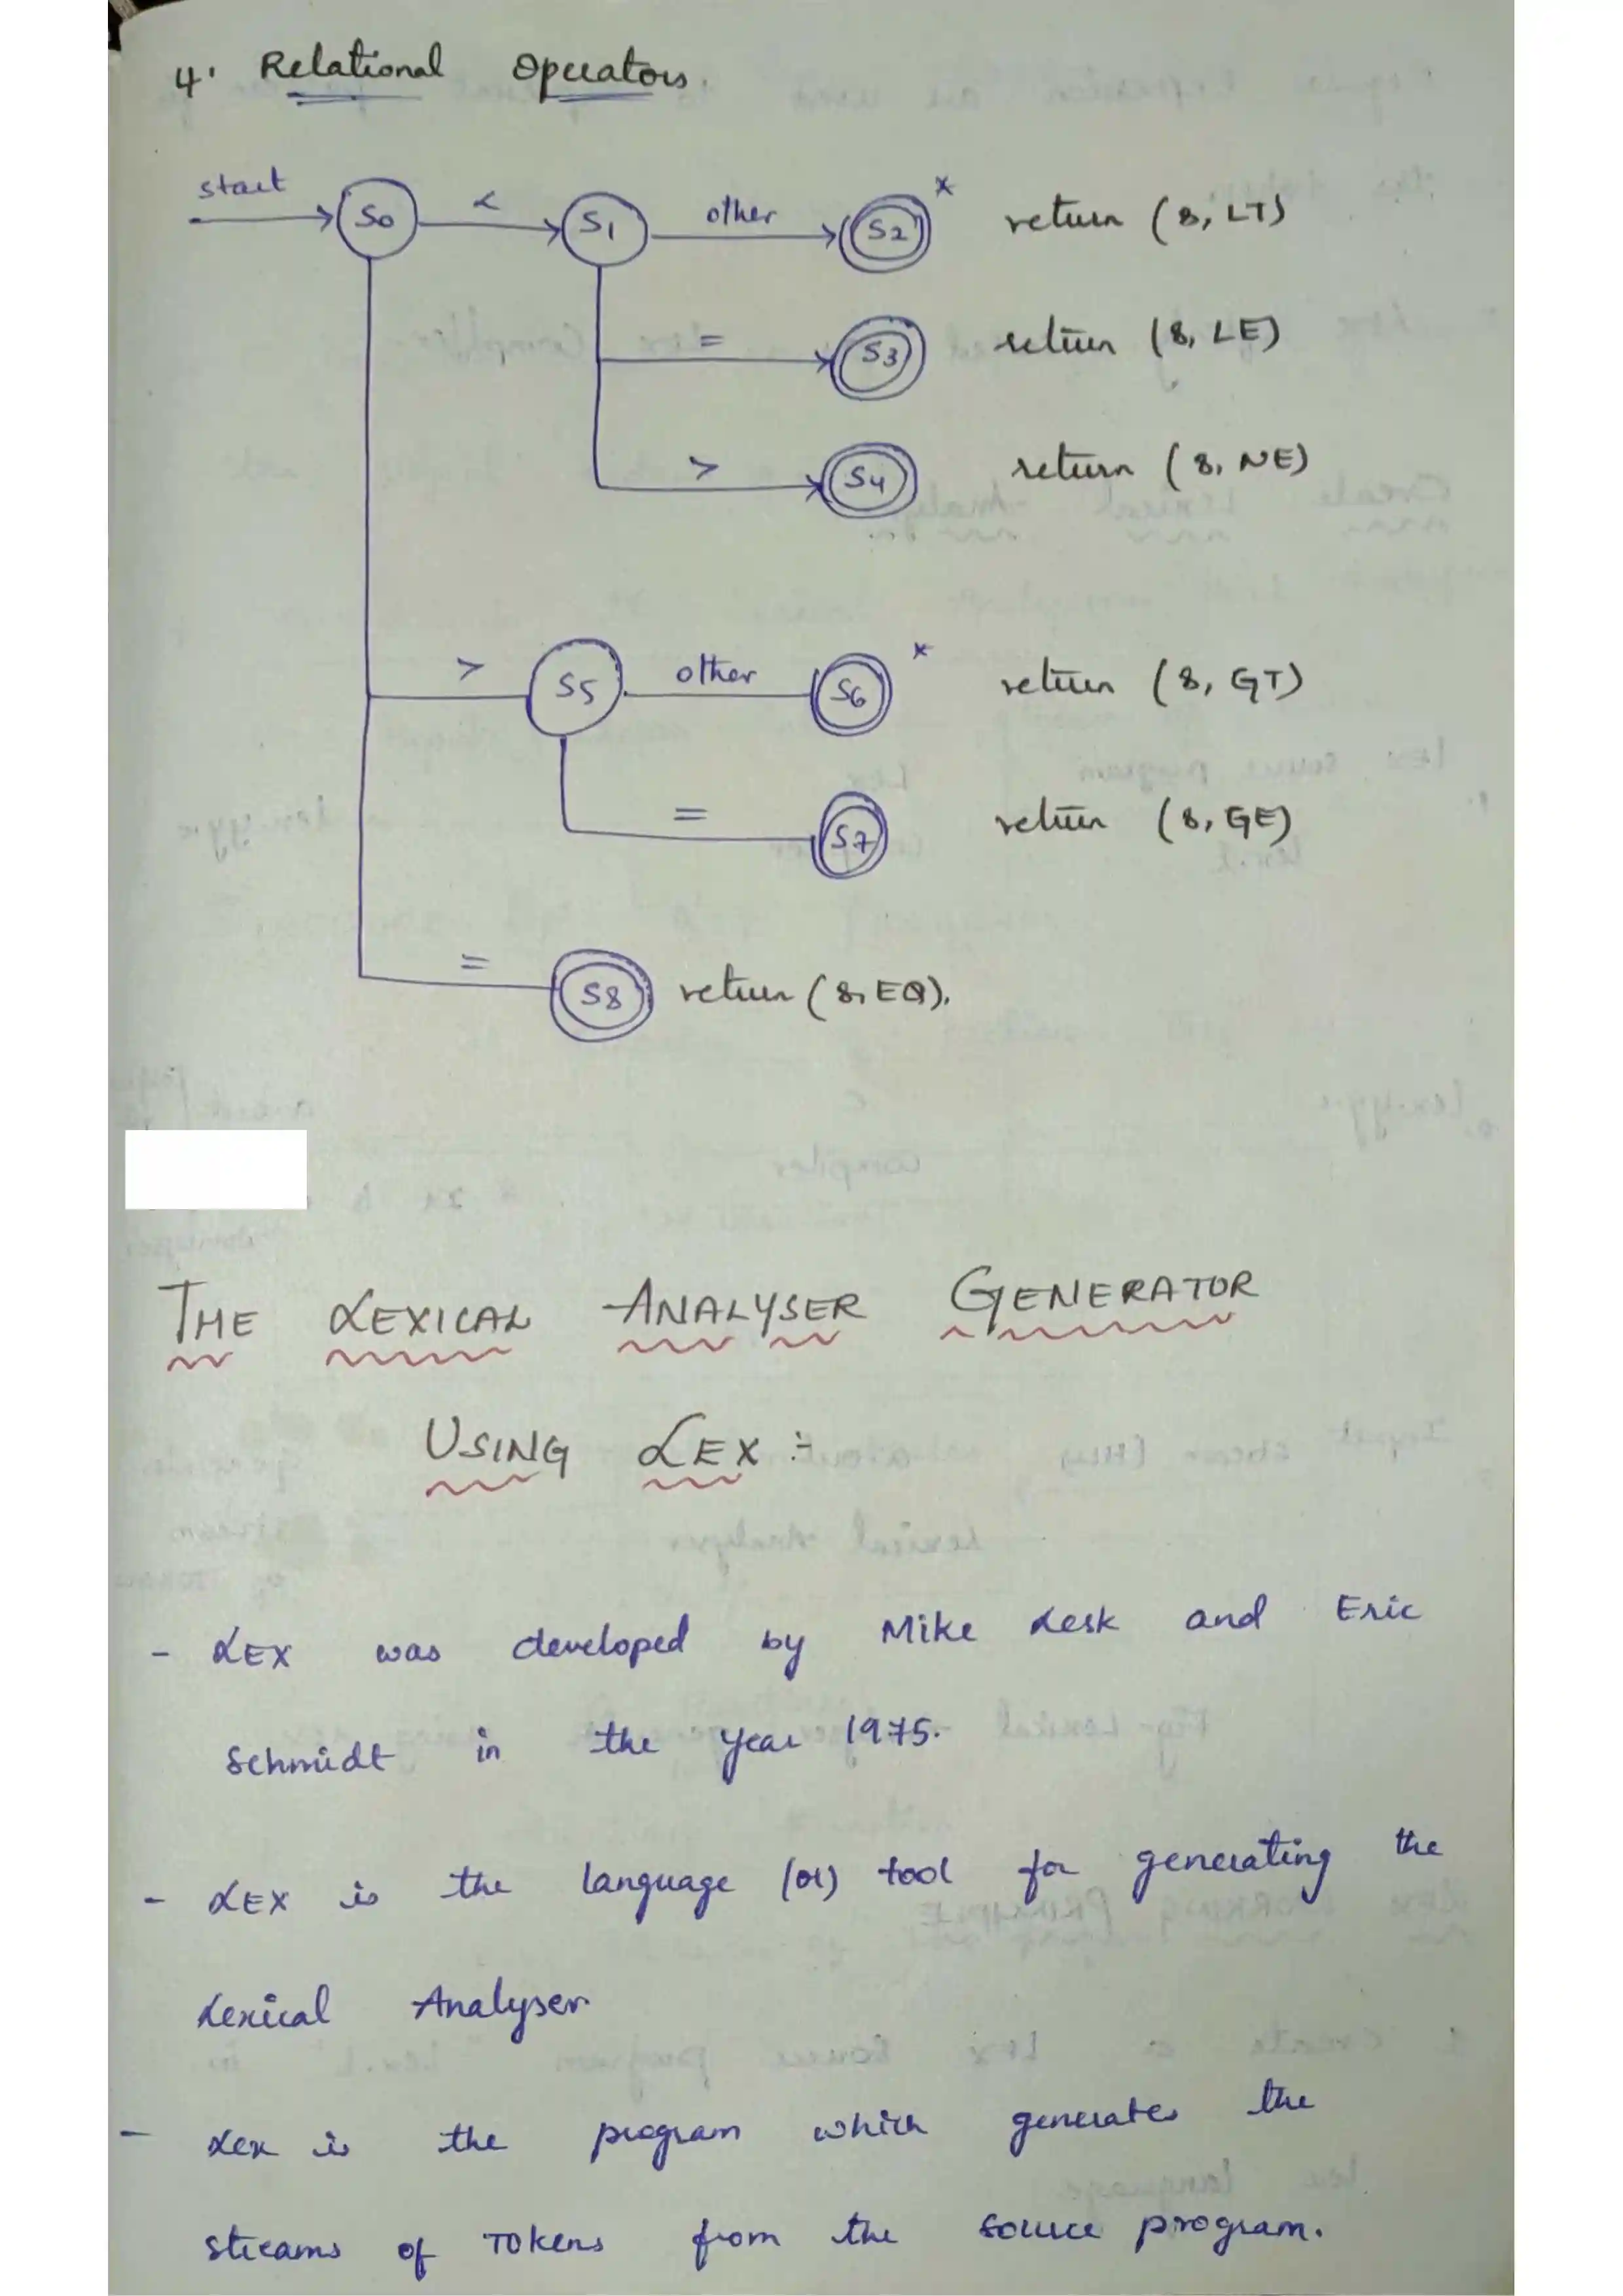 4. Relational Operators.
start S0 < S1 other S2 * return (8, LT)
= S3 return (8, LE)
> S4 return (8, NE)
> S5 other S6 * return (8, GT)
= S7 return (8, GE)
= S8 return (8, EQ).
THE LEXICAL ANALYSER GENERATOR
USING LEX :-
- LEX was developed by Mike Lesk and Eric
Schmidt in the year 1975.
- LEX is the language (or) tool for generating the
Lexical Analyser
- Lex is the program which generates the
streams of TOKENS from the source program.